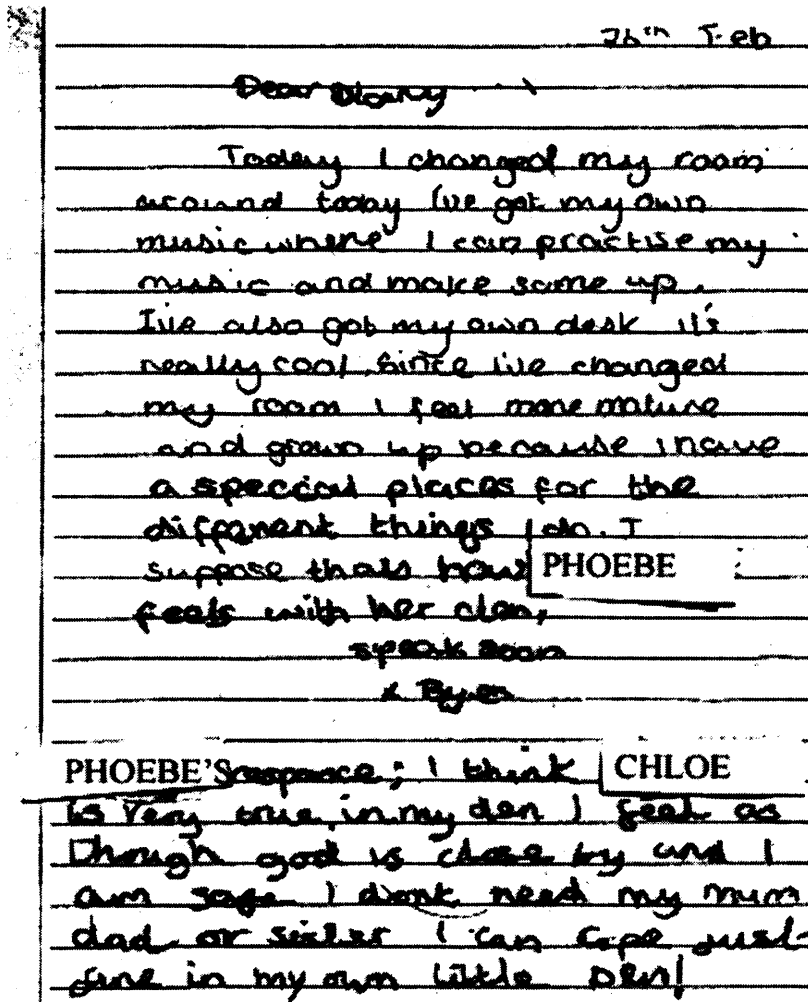 26th Feb
Dear Diary
Today I changed my room
around today I've got my own
music where I can practise my
music and make some up.
I've also got my own desk it's
really cool. Since I've changed
my room I feel more mature
and grown up because I have
a special places for the
different things I do. I
suppose thats how PHOEBE
feels with her den,
speak soon
x Byeen
PHOEBE'S responce; I think CHLOE
is very true, in my den I feel as
though god is close by and I
am safe I dont need my mum
dad or sister I can cope just
fine in my own little Den!